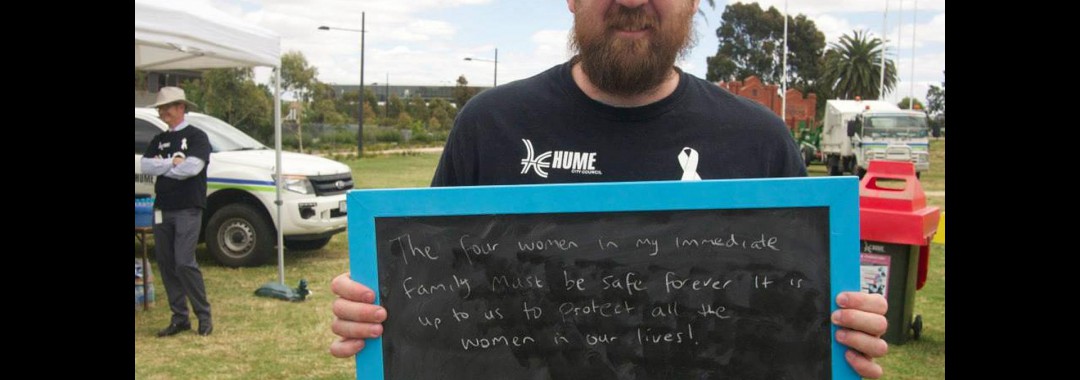 HUME
CITY COUNCIL
HUME
The four women in my immediate
Family Must be safe forever It is
up to us to protect all the
women in our lives!